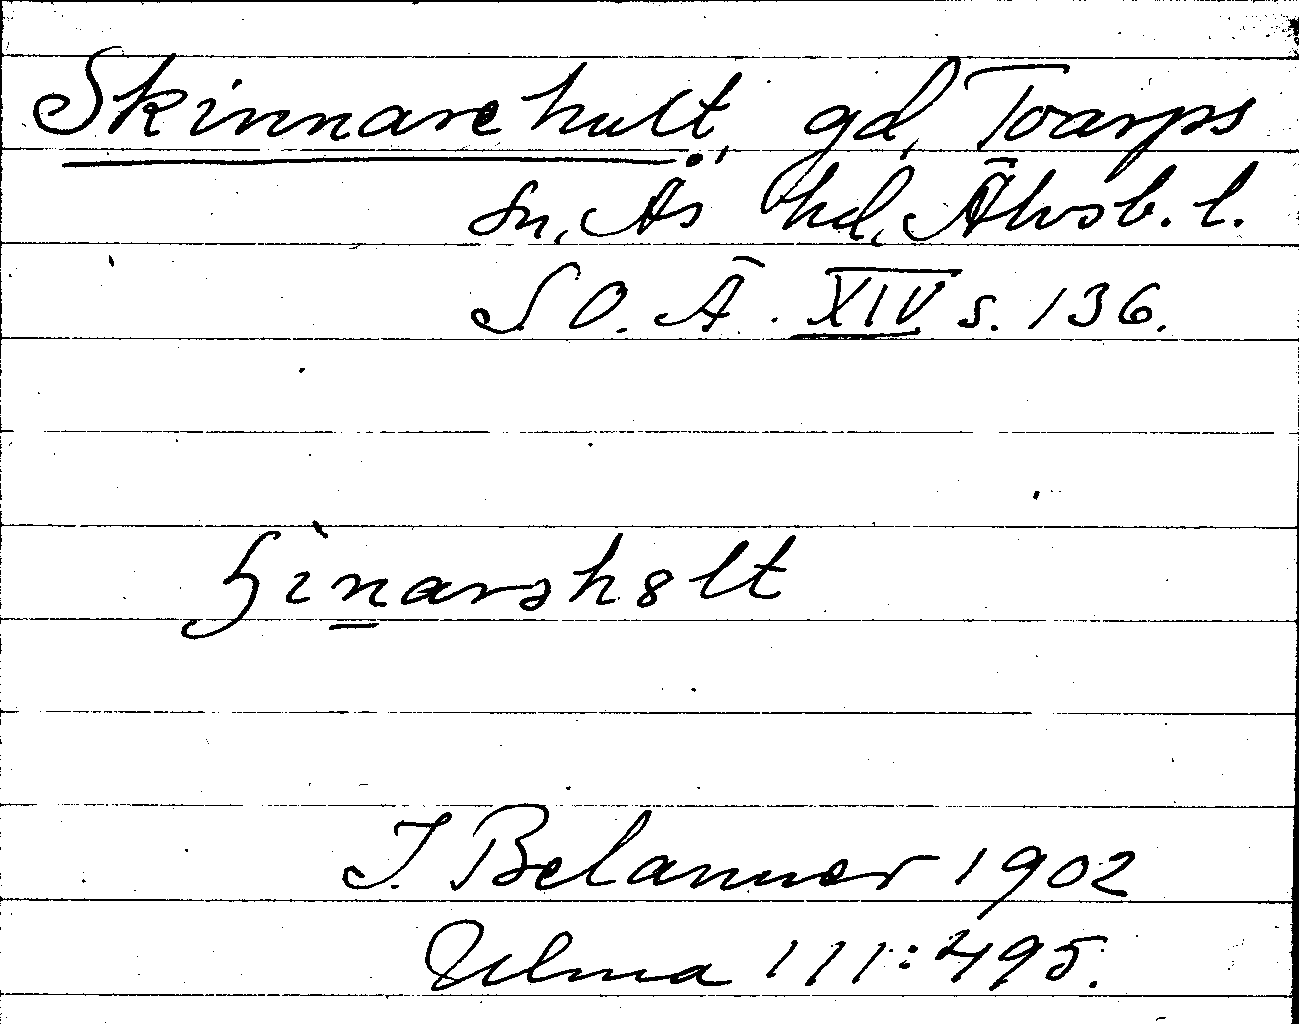 Skinnarehult, gd, Toarps
sn, Ås hd, Älvsb. l.
S O. Ä. XIV s. 136.
ʃinarəh8lt
J. Belanner 1902
Ulma 111:495.